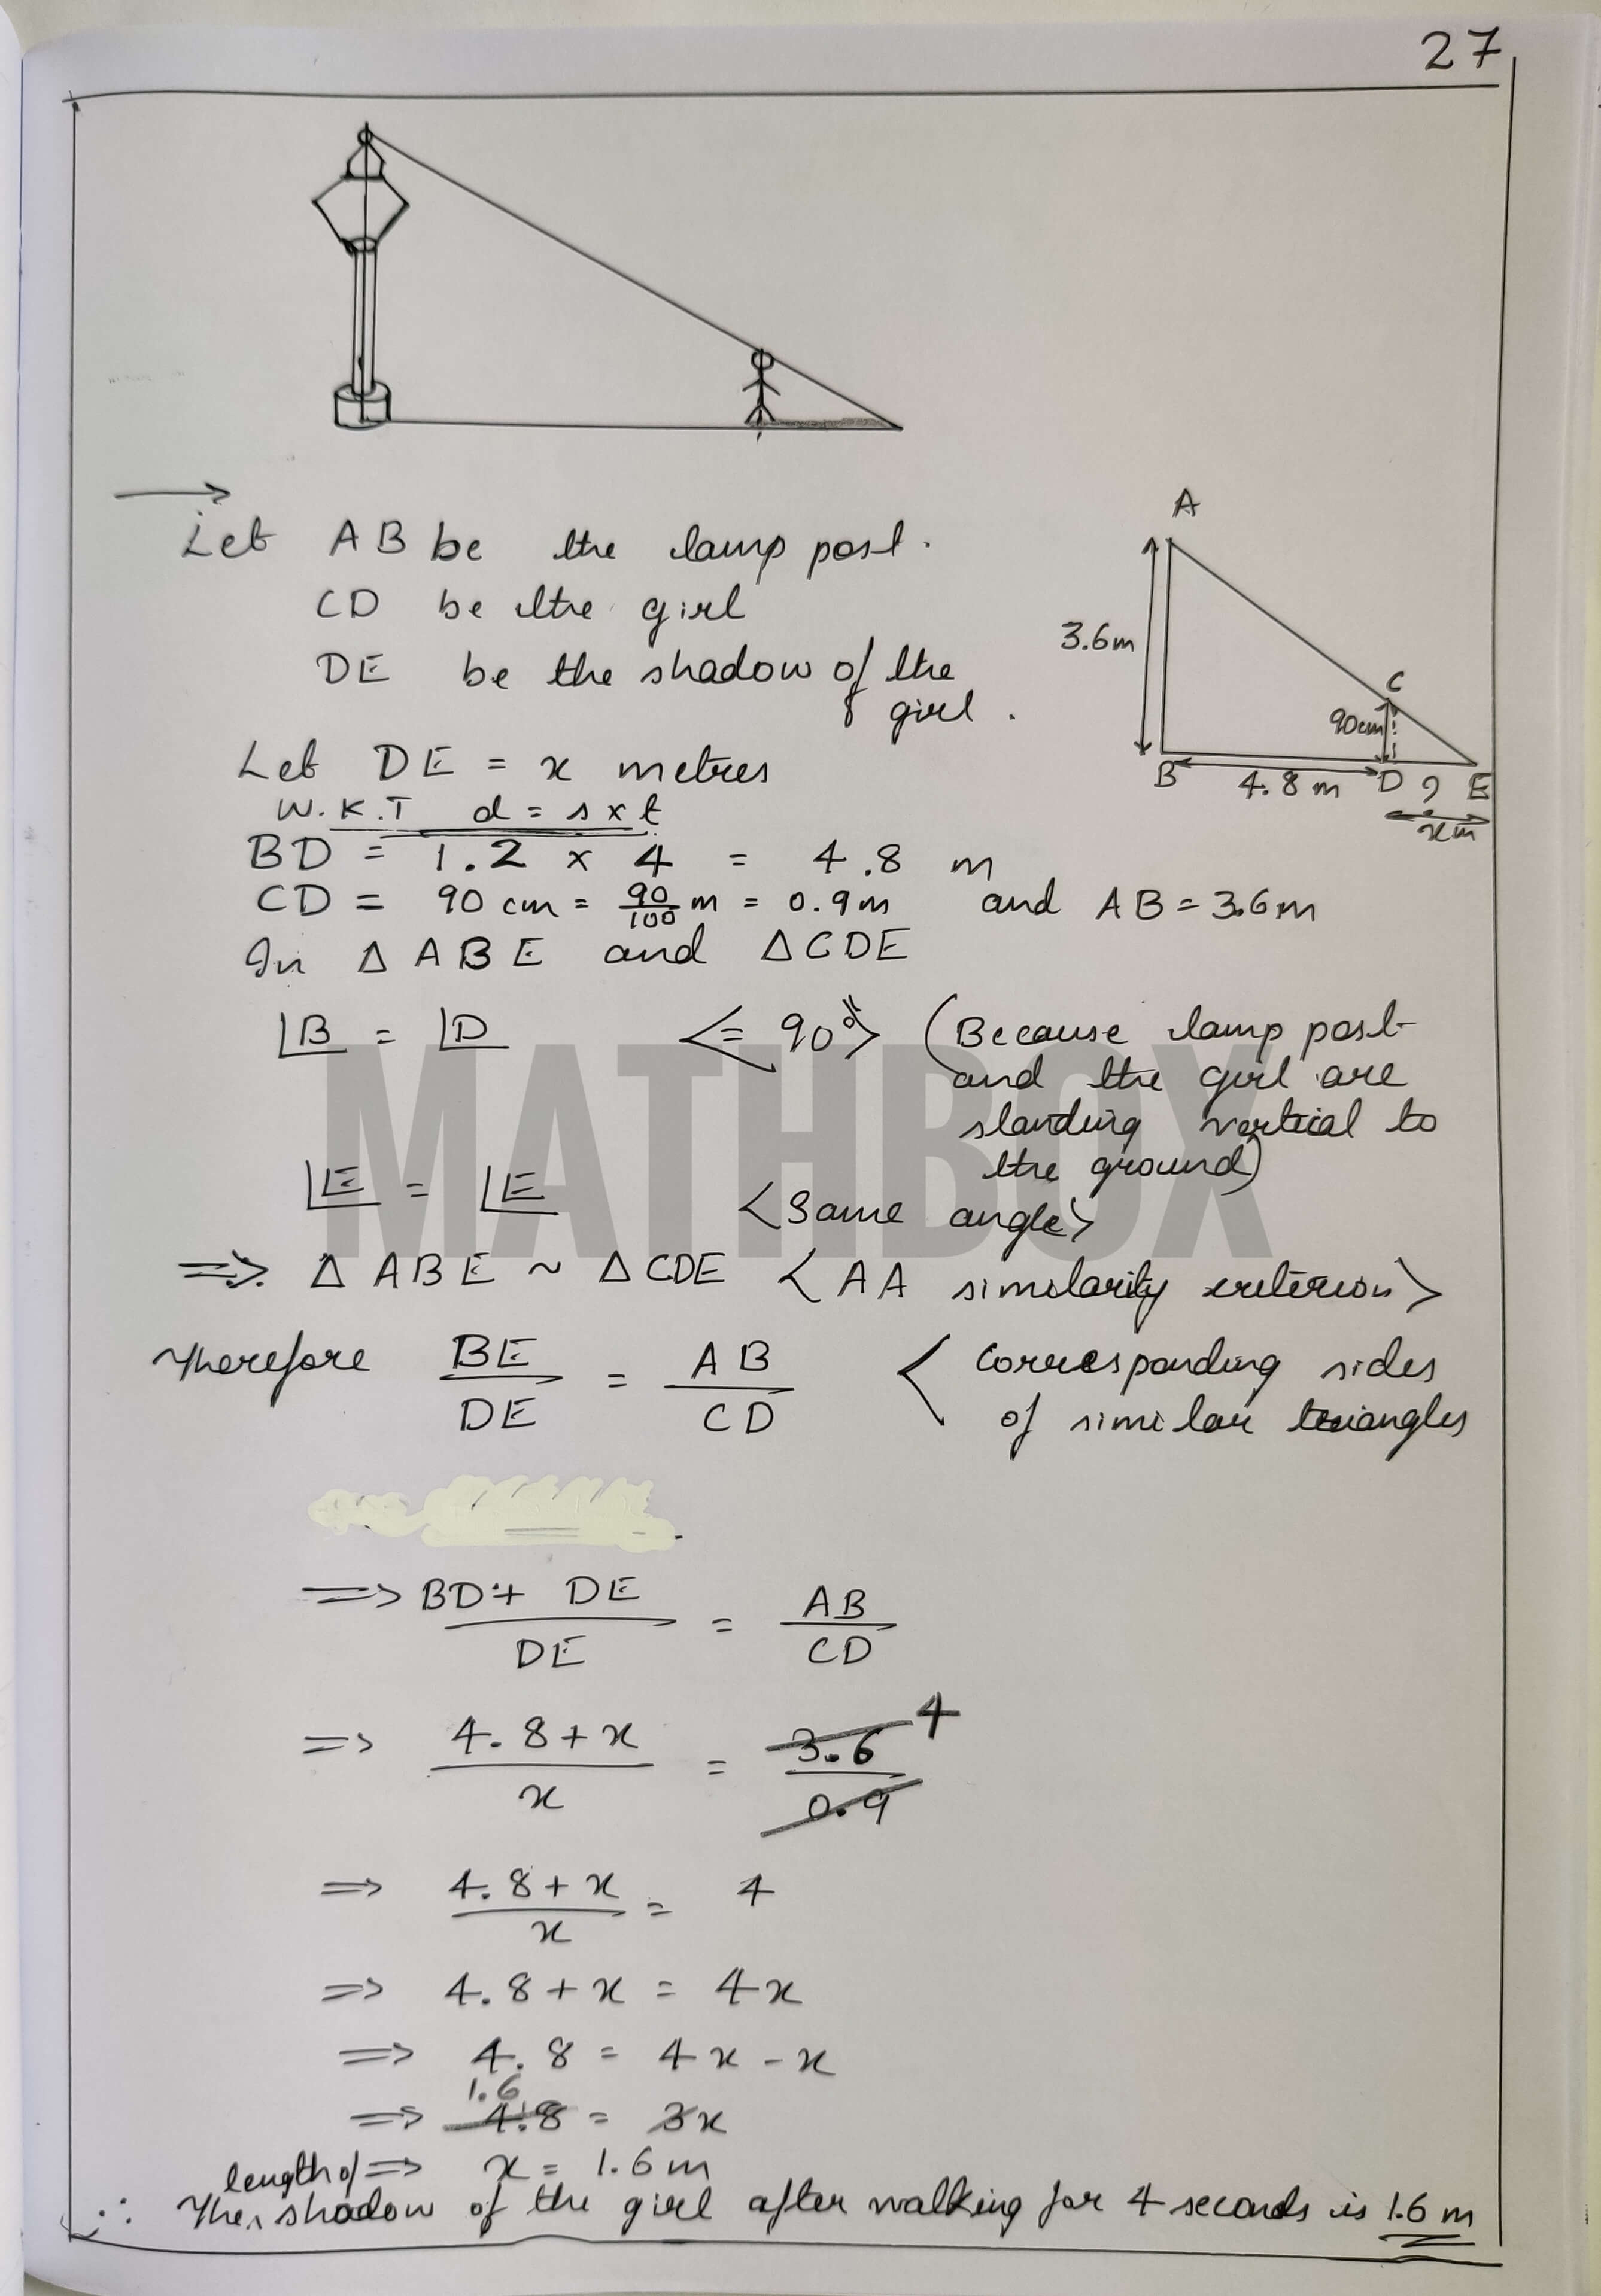 27
Let AB be the lamp post.
CD be the girl
DE be the shadow of the
girl.
A
3.6m
C
90cm
B
4.8 m
D
?
E
xm
Let DE = x metres
W.K.T d = s x t
BD = 1.2 x 4 = 4.8 m
CD = 90 cm = 90/100 m = 0.9m and AB = 3.6m
In Δ ABE and ΔCDE
∠B = ∠D <= 90°> (Because lamp post
and the girl are
standing vertical to
the ground)
∠E = ∠E <Same angle>
MATHBOX
=> Δ ABE ~ ΔCDE <AA similarity criterion>
Therefore BE/DE = AB/CD < corresponding sides
of similar triangles
=> BD + DE/DE = AB/CD
=> 4.8 + x/x = 3.6/0.9 4
=> 4.8 + x/x = 4
=> 4.8 + x = 4x
=> 4.8 = 4x - x
1.6
=> 4.8 = 3x
=> x = 1.6 m
length of
∴ The shadow of the girl after walking for 4 seconds is 1.6 m